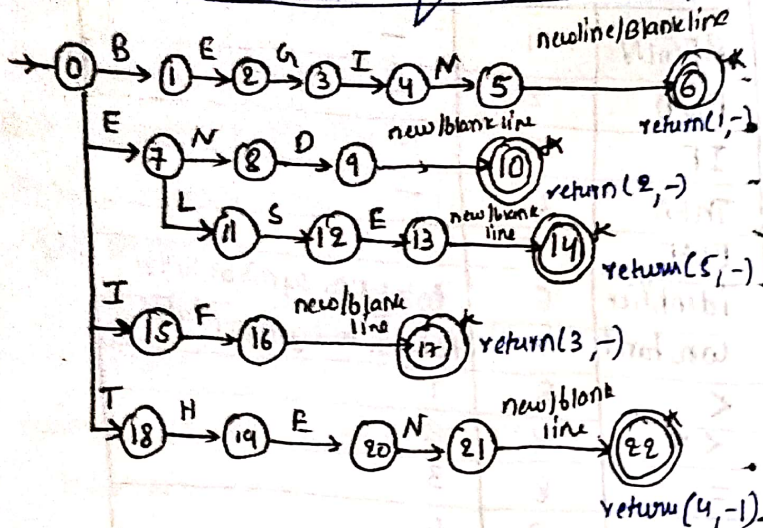 newline/Blankline
0 B 1 E 2 G 3 I 4 N 5 6 *
return(1,-)
E 7 N 8 D 9 new/blankline 10 *
return(2,-)
L 11 S 12 E 13 new/blank line 14 *
return(5,-)
I 15 F 16 new/blank line 17 * return(3,-)
T 18 H 19 E 20 N 21 new/blank line 22 *
return(4,-1)